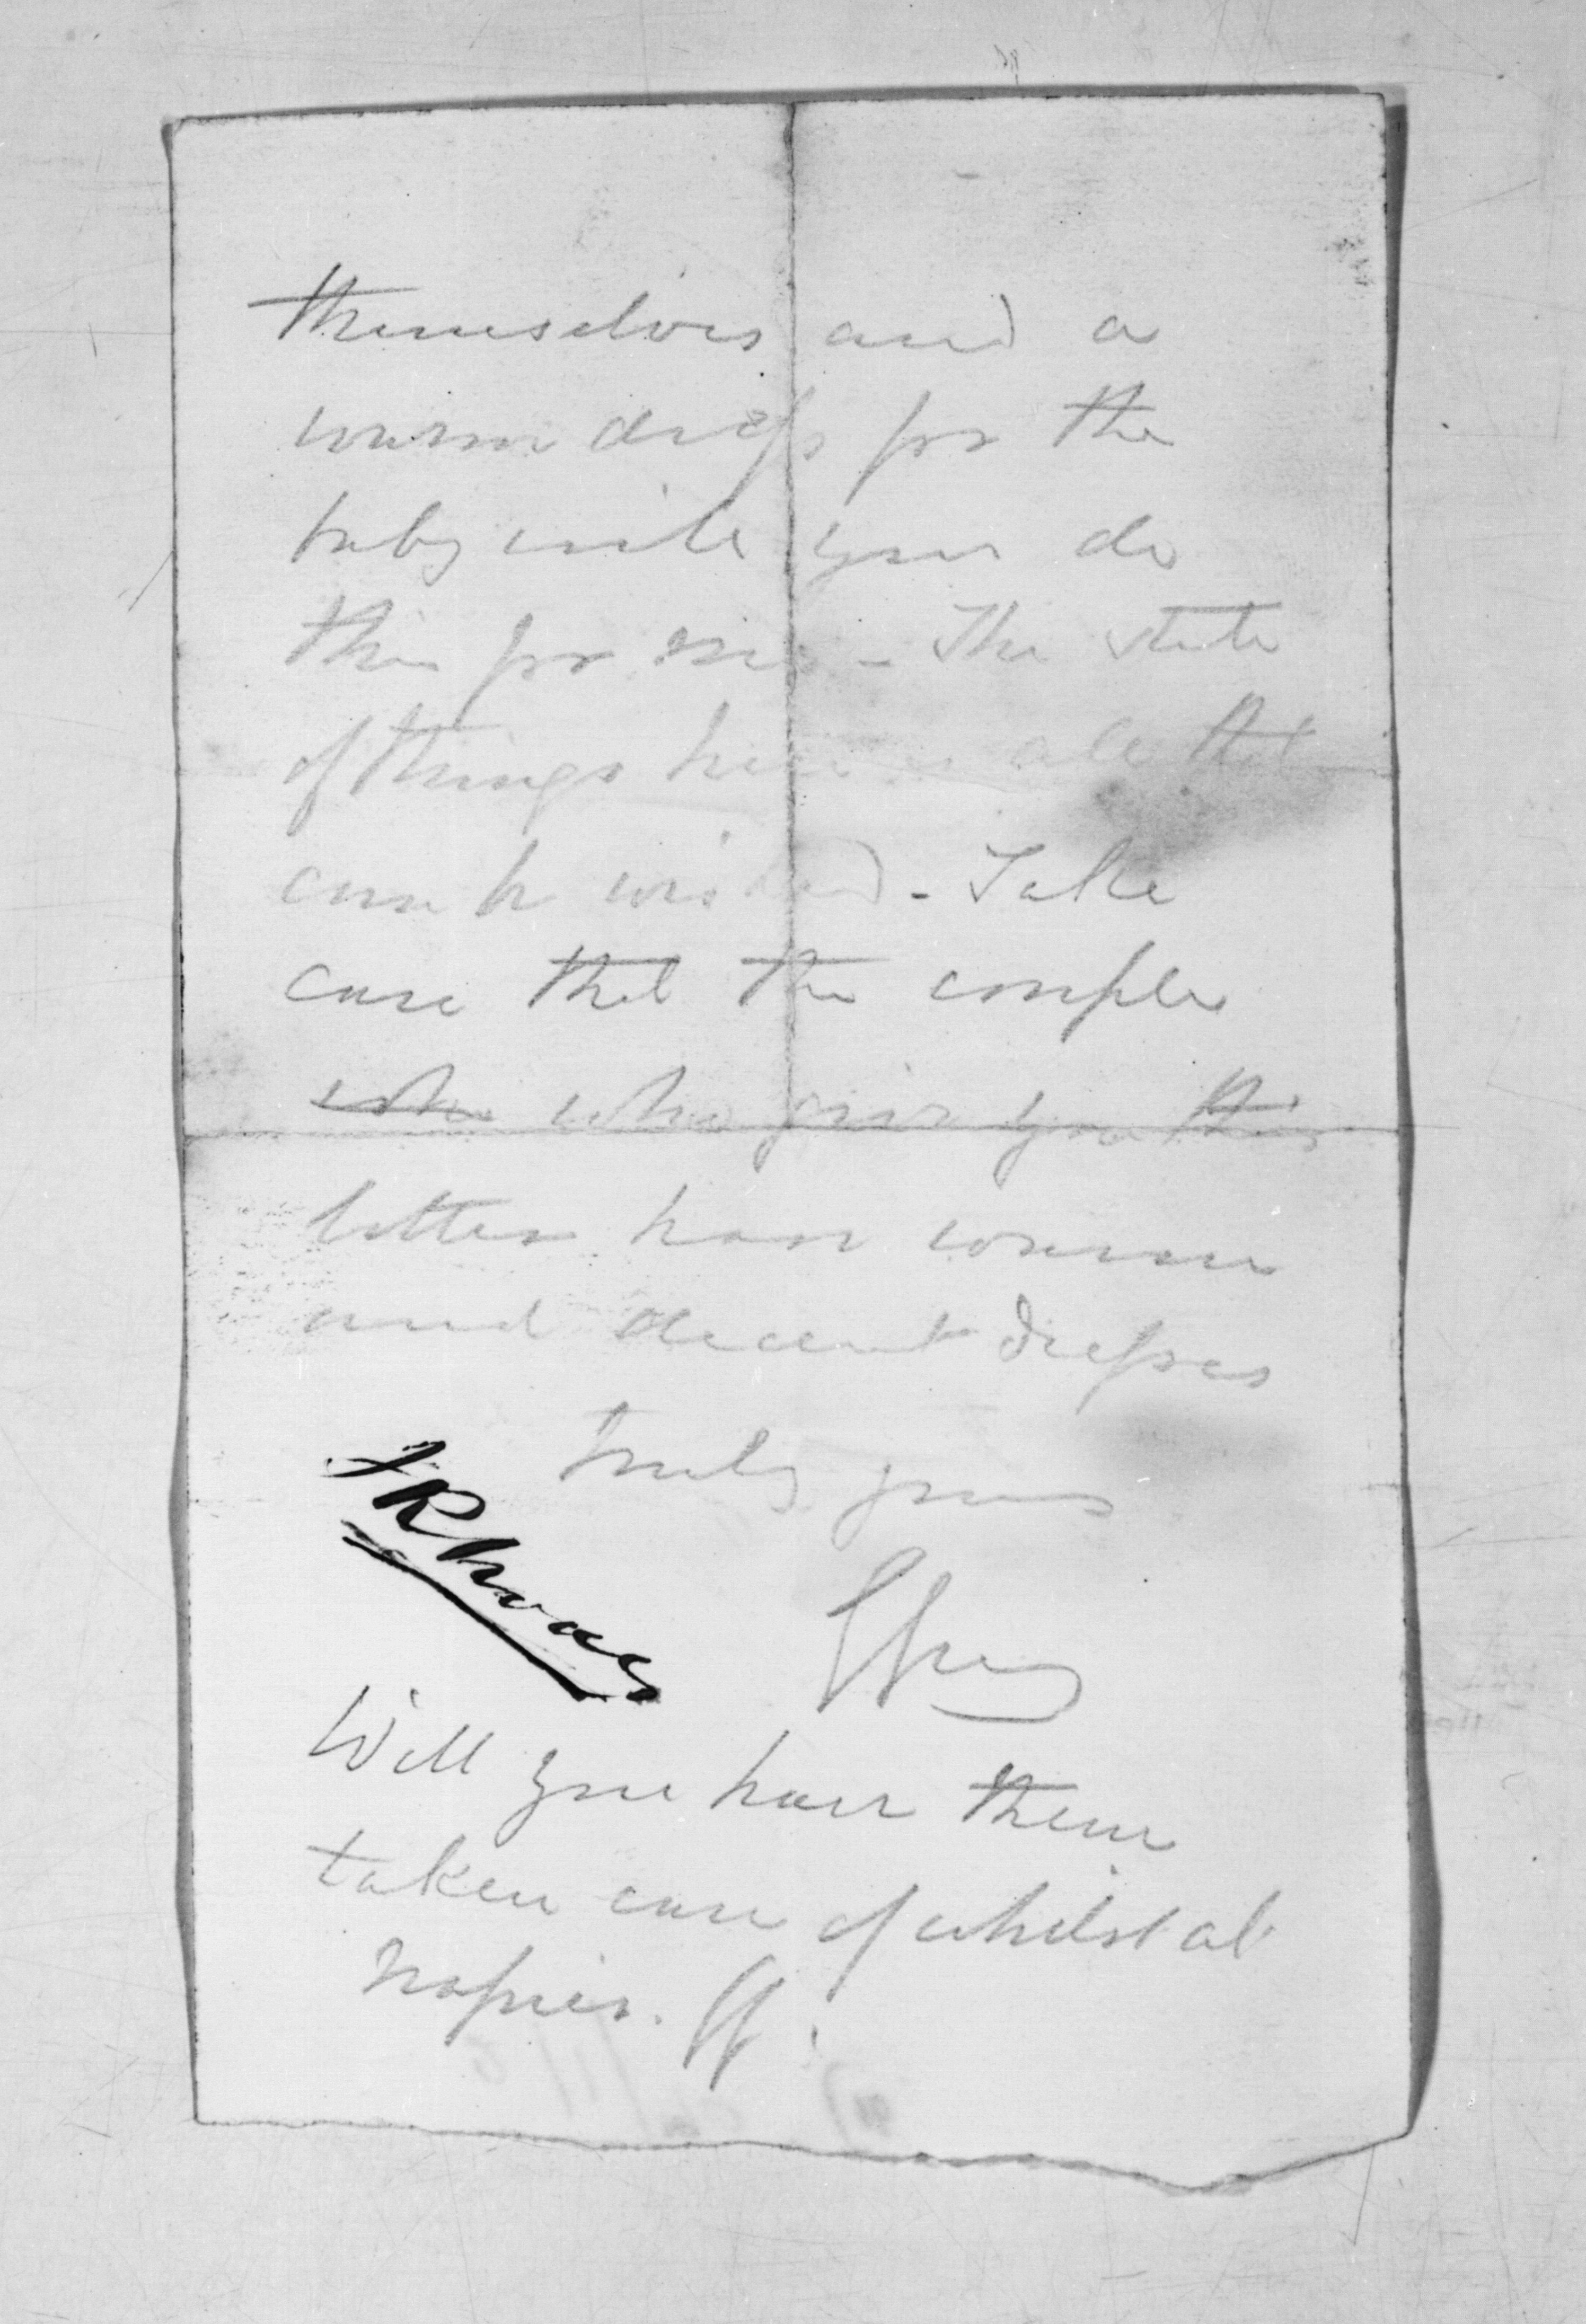 themselves and a
warm dress for the
baby will you do
this for me - The state
of things here is all that
can be wished - Take
care that the couple
who who give you this
letter have warm
and decent dresses
truly yours
J Rhodes
Will you have them
taken care of whilst at
Napier.